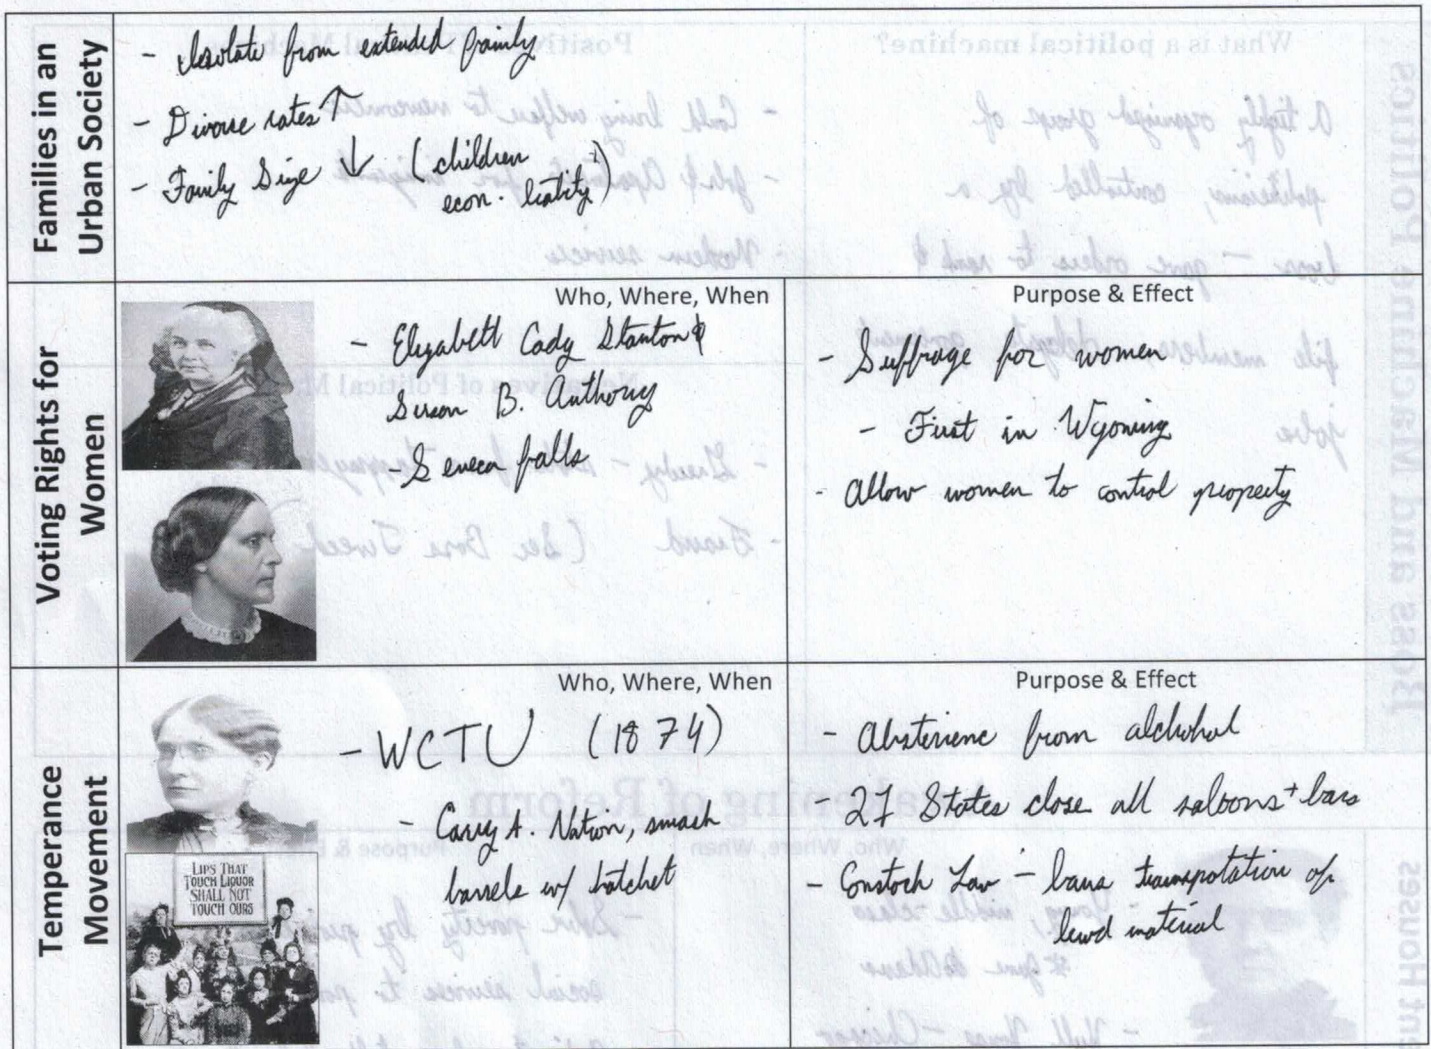 Families in an
Urban Society
- Isolate from extended family
- Divorse rates ↑
- Family Size ↓ (children
econ. liability)
Voting Rights for
Women
Who, Where, When
- Elizabeth Cady Stanton &
Susan B. Anthony
- Seneca falls
Purpose & Effect
- Suffrage for women
- First in Wyoming
- Allow women to control property
Temperance
Movement
LIPS THAT
TOUCH LIQUOR
SHALL NOT
TOUCH OURS
Who, Where, When
- WCTU (1874)
- Carry A. Nation, smash
barrels w/ hatchet
Purpose & Effect
- Absteninc from alchohol
- 27 States close all saloons + bars
- Comstock Law - bans transpotation of
lewd material